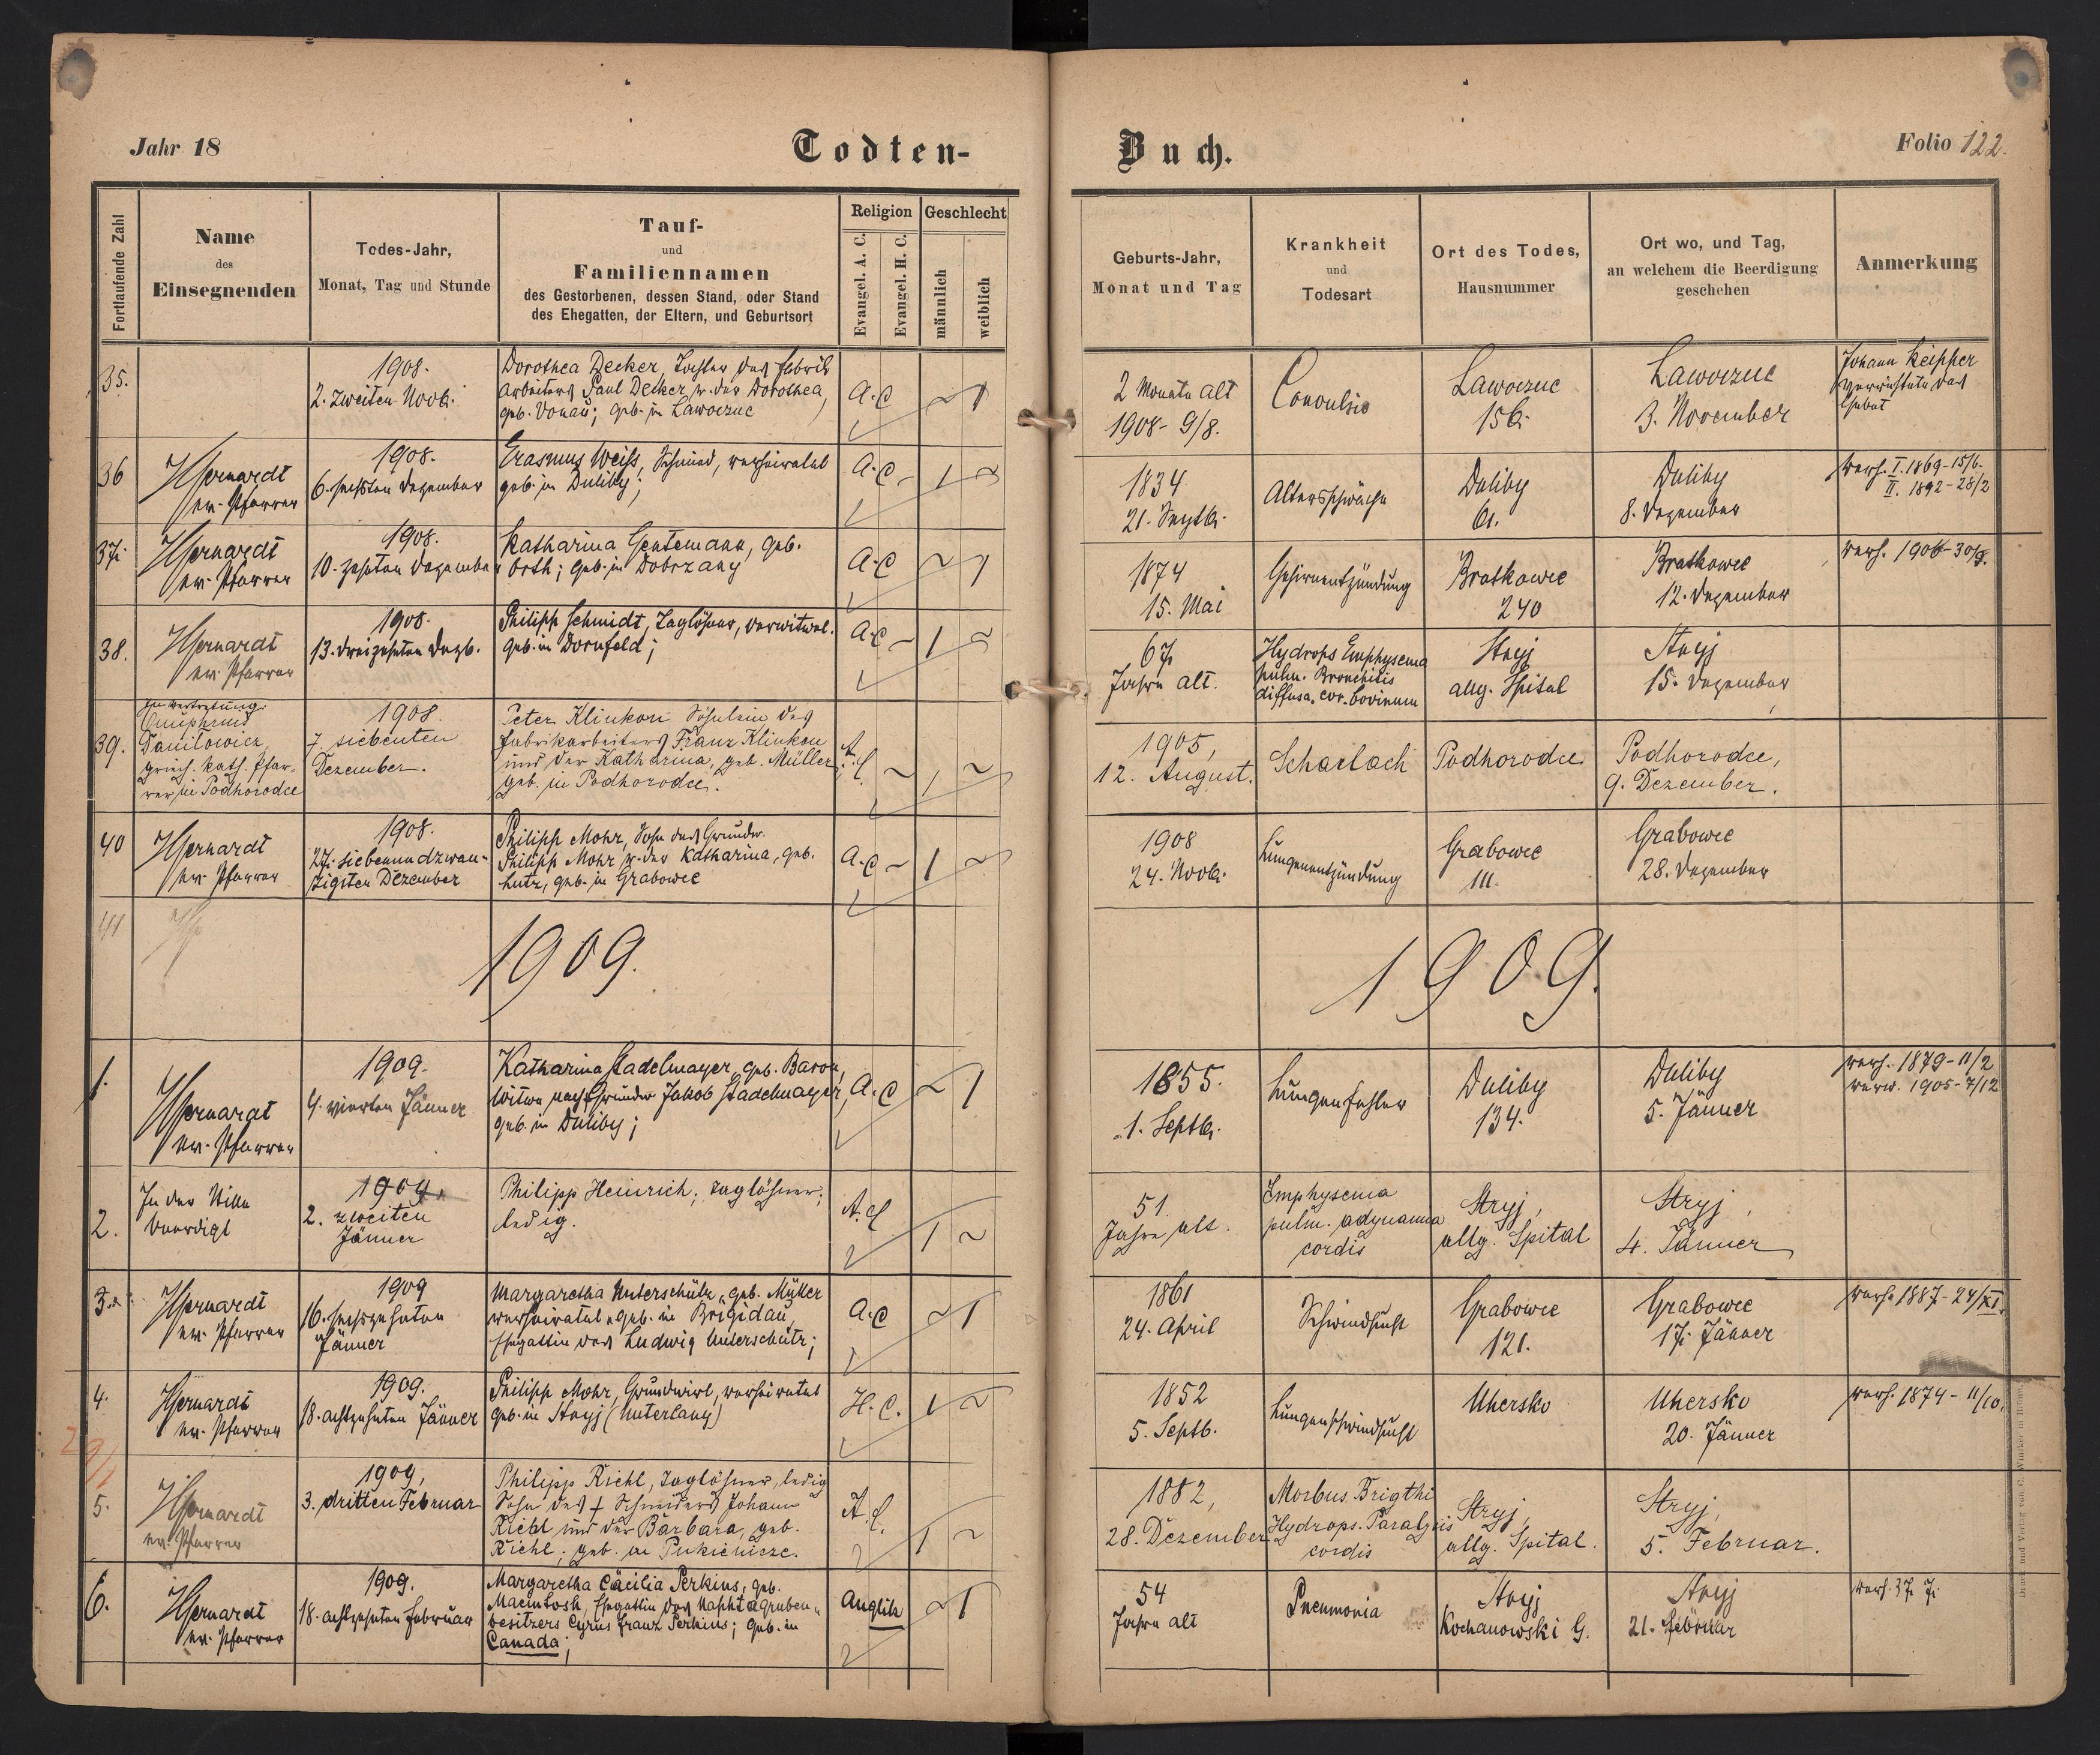 Jahr 18
Todten-
Buch.
Folio 122.
Fortlaufende Zahl
Name
des
Einsegnenden
Todes-Jahr,
Monat, Tag und Stunde
Tauf-
und
Familiennamen
des Gestorbenen, dessen Stand, oder Stand
des Ehegatten, der Eltern, und Geburtsort
Religion
Evangel. A. C.
Evangel. H. C.
Geschlecht
männlich
weiblich
Geburts-Jahr,
Monat und Tag
Krankheit
und
Todesart
Ort des Todes,
Hausnummer
Ort wo, und Tag,
an welchem die Beerdigung
geschehen
Anmerkung
35.
1908.
2. zweiten Novb.
Dorothea Decker, Tochter des Fabriks
arbeiters Paul Decker u. der Dorothea,
geb. Donau; geb. in Lawoczne
A.C ~ 1
2 Monate alt
1908 - 9/8.
Convulsio
Lawoczne
156.
Lawoczne
3. November
Johann Keipper
verrichtete das
Gebet
36
ev. Pfarrer
1908.
6. sechsten Dezember
Erasmus Weiss, Schmied, verheiratet
geb. in Duliby;
A.C - 1 ~
1834
21. Septb.
Altersschwäche
Duliby
61.
Duliby
8. Dezember
verh. I. 1869 - 15/6.
II. 1892 - 28/2
37.
ev. Pfarrer
1908.
10. zehnten Dezember
Katharina Gentemann, geb.
Orth; geb. in Dobrzany
A.C ~ 1
1874
15. Mai
Gehirnentzündung
Bratkowce
240
Bratkowce
12. Dezember
38.
ev. Pfarrer
1908.
13. dreizehnten Dezb.
Philipp Schmidt, Taglöhner, verwitwet.
geb. in Dornfeld;
A.C ~ 1 ~
67
Jahre alt.
Hydrops Emphysema
pulm. Bronchitis
diffusa. cor. bovinum
Stryj
allg. Spital
Stryj
15. Dezember
39.
In Vertretung:
Onuphrius
Daniłowicz
griech. kath. Pfar-
rer in Podhorodce
1908.
7. siebenten
Dezember.
Peter Klinkon Söhnlein des
Fabrikarbeiters Franz Klinkon
und der Katharina, geb. Müller
geb. in Podhorodce.
A.C. ~ 1 ~
1905,
12. August.
Scharlach
Podhorodce
Podhorodce,
9. Dezember.
40
ev. Pfarrer
1908.
27. siebenundzwan-
zigsten Dezember
Philipp Mohr, Sohn des Grundw.
Philipp Mohr u. der Katharina, geb.
Lutz, geb. in Grabowce
A.C ~ 1 ~
1908
24. Novb.
Lungenentzündung
Grabowce
111.
Grabowce
28. Dezember
41
1909.
1909.
1.
ev. Pfarrer
1909.
4. vierten Jänner
Katharina Stadelmayer, geb. Baron,
Witwe nach Grundw Jakob Stadelmayer,
geb. in Duliby;
A.C ~ 1
1855.
1. Septb.
Lungenfehler
Duliby
134.
Duliby
5. Jänner
verh. 1879 - 11/2
verw. 1905 - 7/12
2.
In der Stille
beerdigt
1909.
2. zweiten
Jänner
Philipp Heinrich; Taglöhner;
ledig.
A.C. 1 ~
51
Jahre alt.
Emphysema
pulm. adynamia
cordis
Stryj,
allg. Spital
Stryj,
4. Jänner
3.
ev. Pfarrer
1909
16. sechszehnten
Jänner
Margaretha Unterschütz, geb. Müller
verheiratet, geb. in Brigidau,
Ehegattin des Ludwig Unterschütz;
A.C ~ 1
1861
24. April
Schwindsucht
Grabowce
121.
Grabowce
17. Jänner
verh. 1887 - 24/XI.
4.
ev. Pfarrer
1909.
18. achtzehnten Jänner
Philipp Mohr, Grundwirt, verheiratet
geb. in Stryj (Unterlany)
H.C. 1 ~
1852
5. Septb.
Lungenschwindsucht
Uhersko
Uhersko
20. Jänner
verh. 1874 - 11/10.
5.
ev. Pfarrer
1909,
3. dritten Februar
Philipp Riehl, Taglöhner, ledig
Sohn des † Schneiders Johann
Riehl und der Barbara, geb.
Riehl; geb. in Pukienicze.
A.C. 1 ~
1882,
28. Dezember
Morbus Brigthi
Hydrops. Paralysis
cordis
Stryj,
allg. Spital.
Stryj,
5. Februar.
6.
ev. Pfarrer
1909.
18. achtzehnten Februar
Margaretha Cäcilia Perkins, geb.
Macintosh, Ehegattin des Naphtagruben-
besitzers Cyrus Franz Perkins; geb. in
Canada;
Anglik ~ 1
54
Jahre alt
Pneumonia
Stryj
Kochanowski G.
Stryj
21. Februar